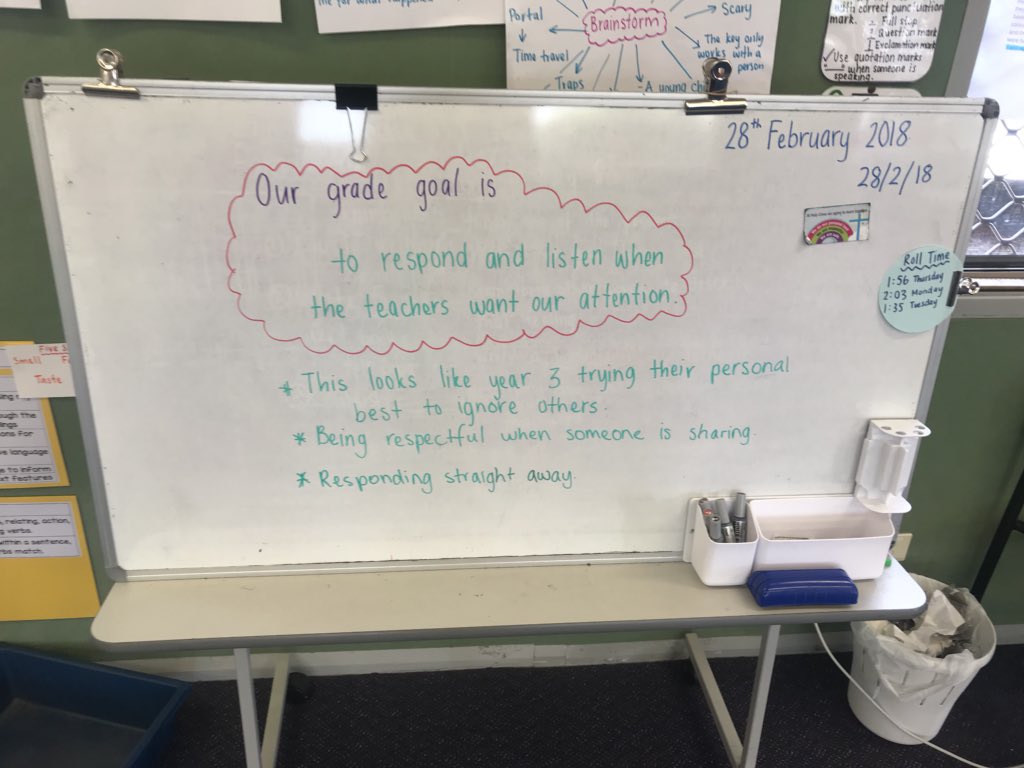 Portal
Time travel
Traps
Brainstorm
Scary
The key only
works with a
person
A young
with correct punctuation
mark.
. Full stop
? Question mark
! Exclamation mark
✓ Use quotation marks
when someone is
speaking.
28th February 2018
28/2/18
Our grade goal is
to respond and listen when
the teachers want our attention.
* This looks like year 3 trying their personal
best to ignore others.
* Being respectful when someone is sharing.
* Responding straight away.
Roll Time
1:56 Thursday
2:03 Monday
1:35 Tuesday
Five
Small
Taste
language
to inform
features
relating, action,
verbs.
within a sentence,
match.